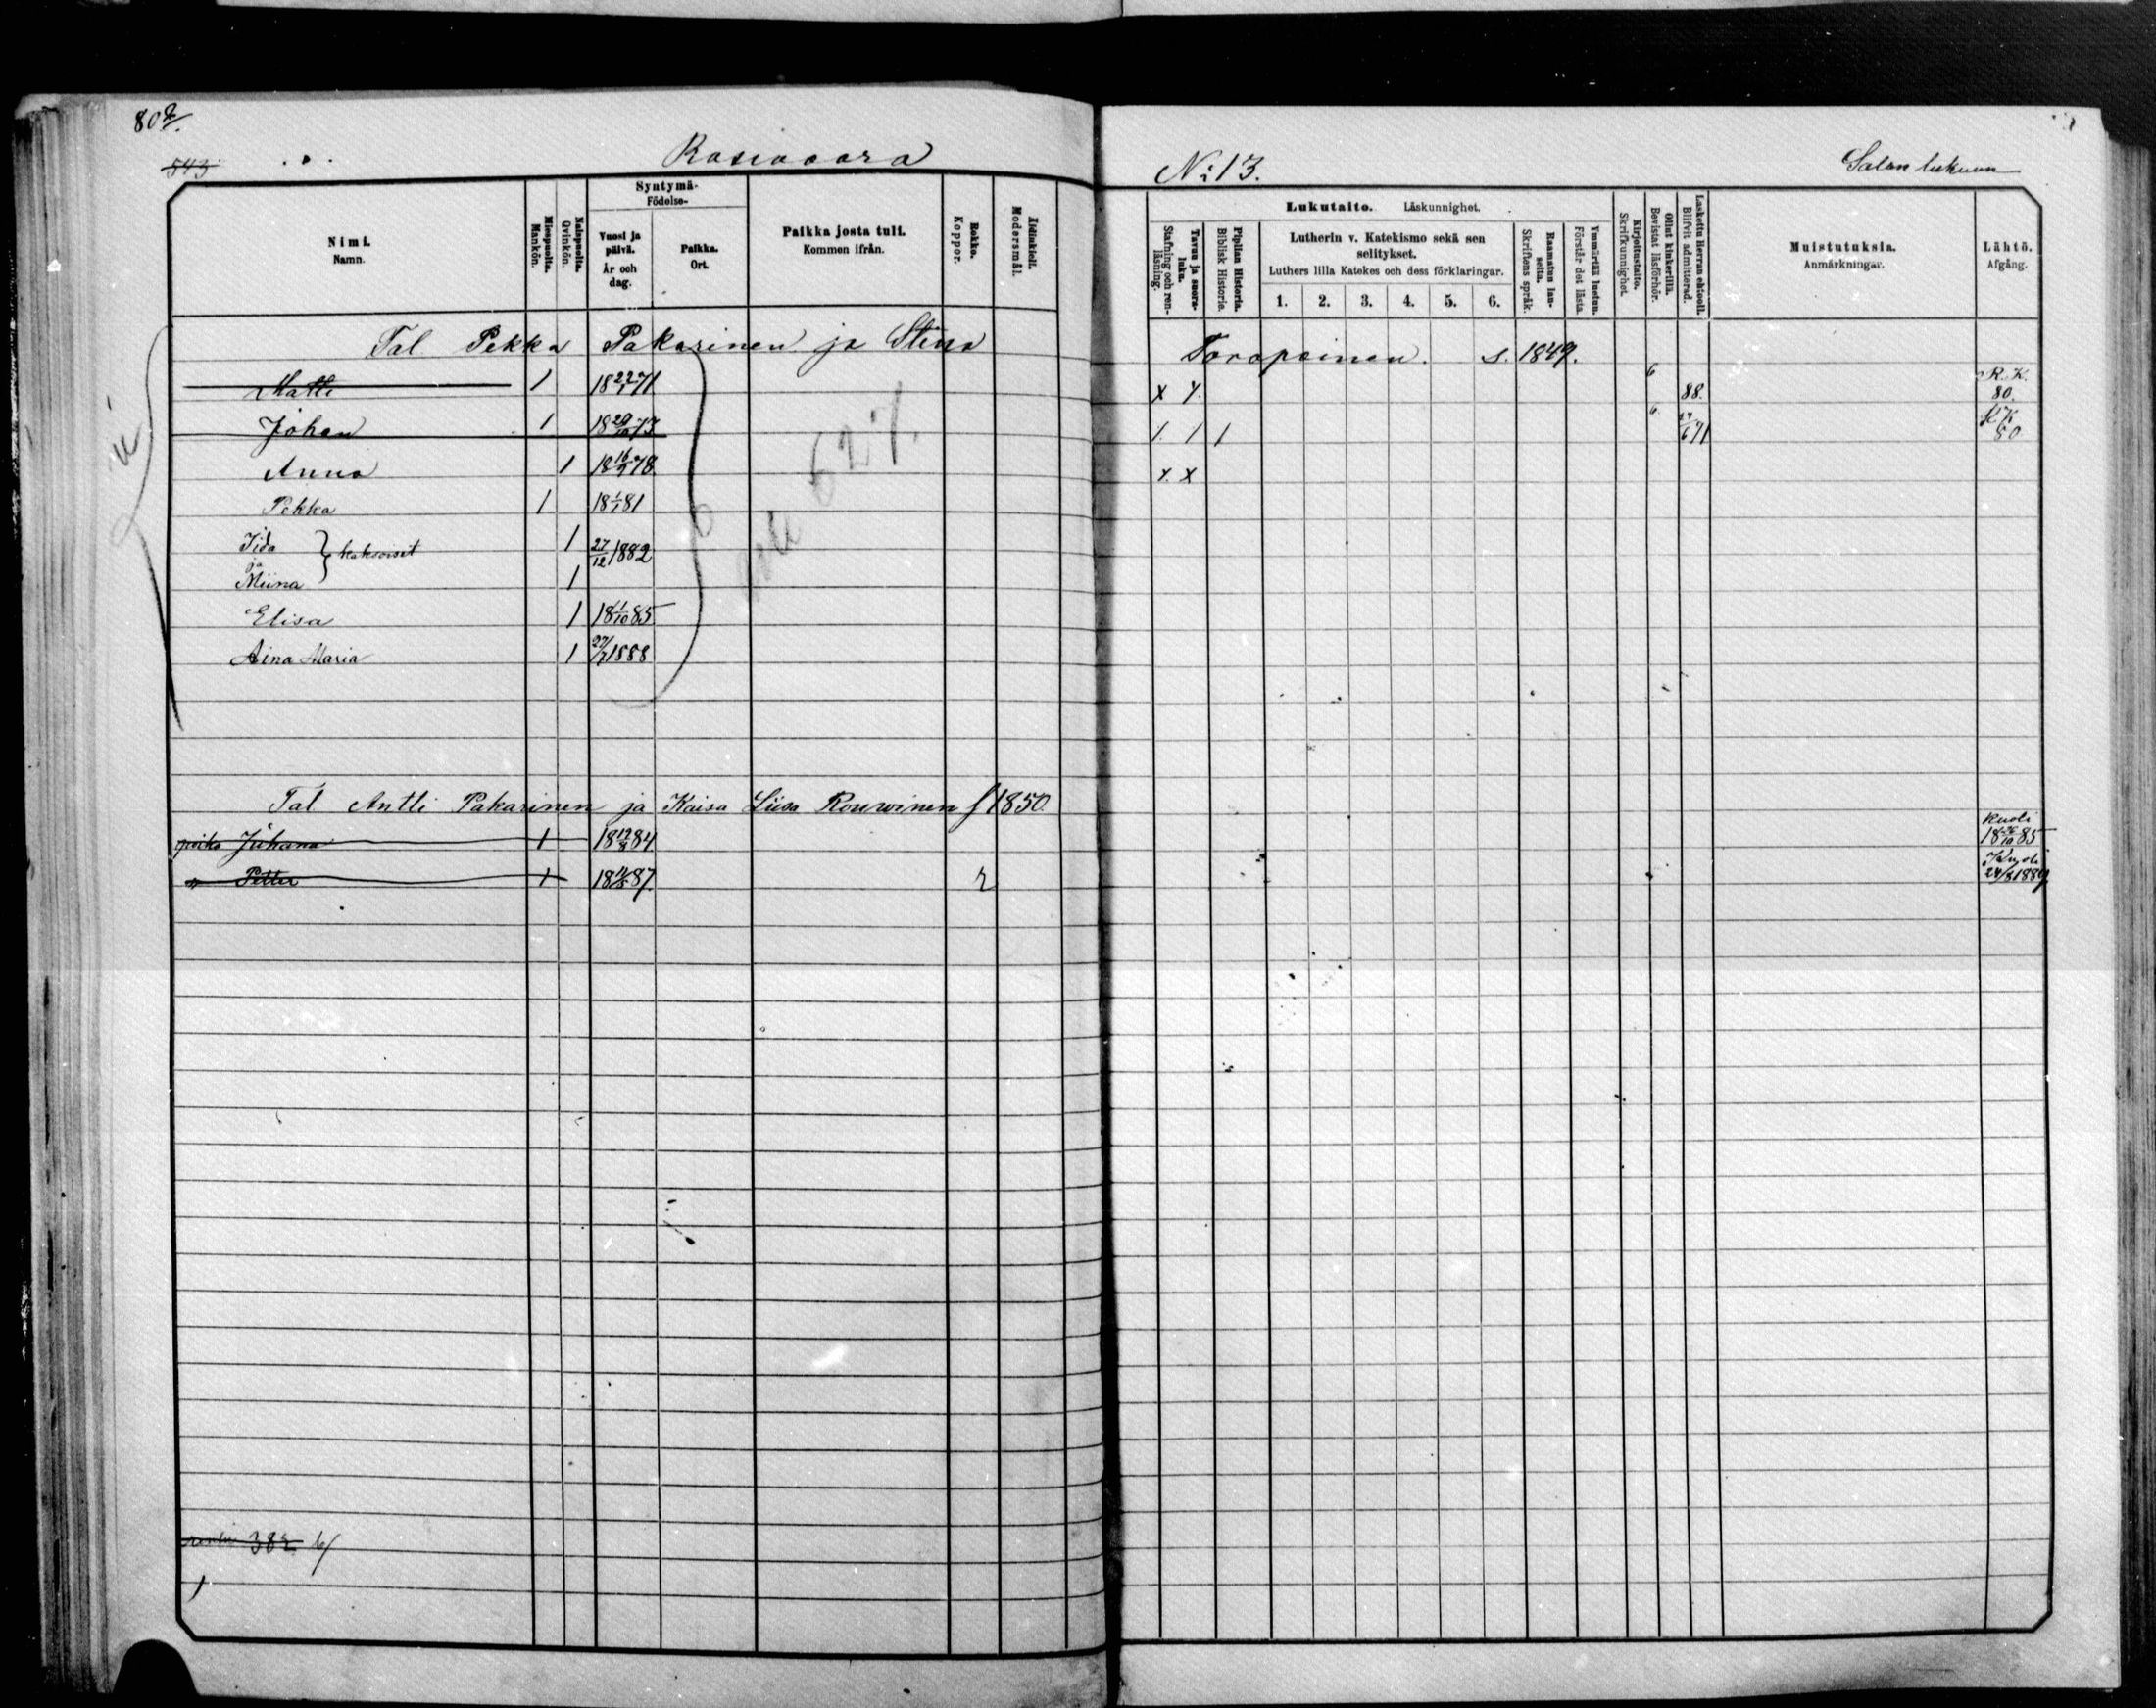 802/.
543
Rasivaara
N:13.
Salon lukuun
Nimi.
Namn.
Miespuolta.
Mankön.
Naispuolta.
Qvinkön.
Syntymä-
Födelse-
Vuosi ja päivä.
År och dag.
Paikka.
Ort.
Paikka josta tuli.
Kommen ifrån.
Rokko.
Koppor.
Äidinkieli.
Modersmål.
Lukutaito. Läskunnighet.
Tavu ja suora-luku.
Stafning och ren-läsning.
Piplian Historia.
Biblisk Historie.
Lutherin v. Katekismo sekä sen selitykset.
Luthers lilla Katekes och dess förklaringar.
1. 2. 3. 4. 5. 6.
Raamatun lau-seita.
Skriftens språk.
Ymmärtää luetun.
Förstår det lästa.
Kirjoitustaito.
Skrifkunnighet.
Ollut kinkerillä.
Bevistat läsförhör.
Laskettu Herran ehtooll.
Blifvit admitterad.
Muistutuksia.
Anmärkningar.
Lähtö.
Afgång.
Tal Pekka Pakarinen ja Stina Toropainen. s. 1849.
Matti 1 18 22/1 71 x x. 6 88. R.K. 80.
Johan 1 18 29/10 73 1. 1 1 6 91 R.K. 80
Anna 1 18 16/2 78 x. x
Pekka 1 18 1/1 81
Iida 1 27/12 1882
ja } kaksoiset
Miina 1
Elisa 1 18 1/10 85
Aina Maria 1 27/7 1888
627.
Tal Antti Pakarinen ja Kaisa Liisa Rouwinen s 1850.
poika Juhana 1 18 12/8 84 kuoli 18 26/10 85
" Petter 1 18 11/5 87. r Kuoli 24/8 1889
382 6/
1